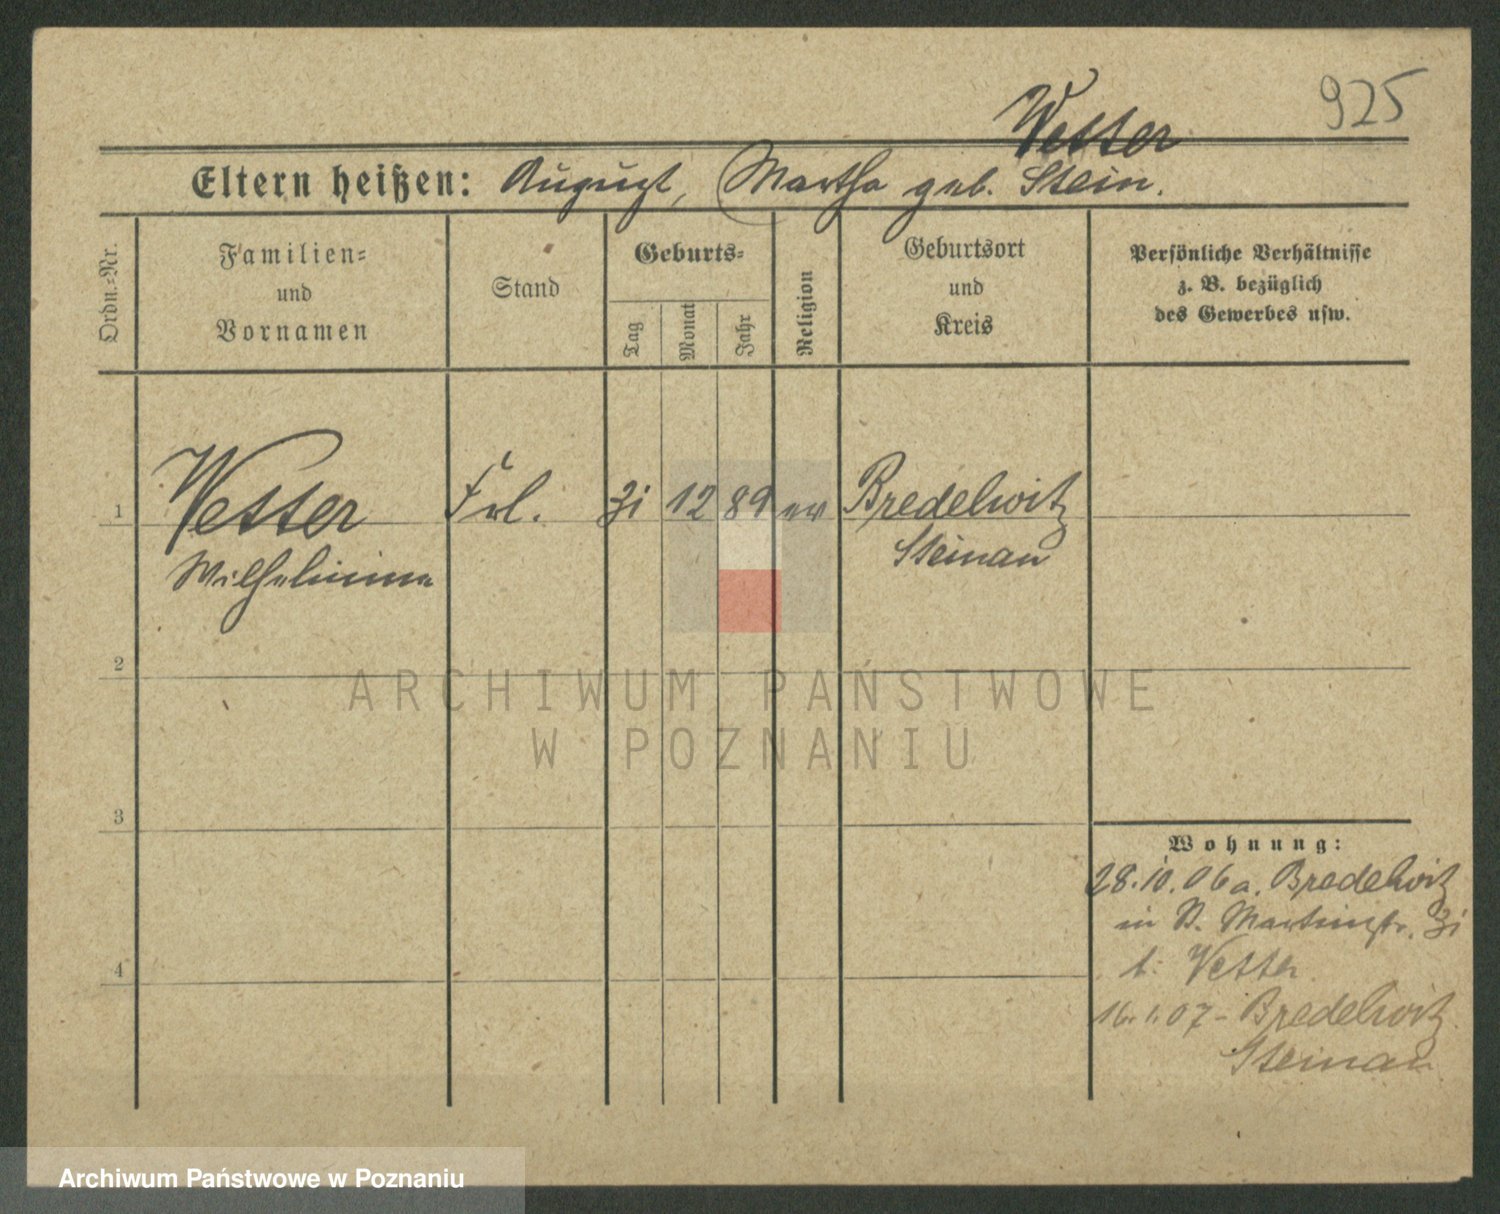 925
Vetter
Eltern heißen: August, Martha geb. Stein.
Ordn.-Nr.
Familien-
und
Vornamen
Stand
Geburts-
Tag
Monat
Jahr
Religion
Geburtsort
und
Kreis
Persönliche Verhältnisse
z. B. bezüglich
des Gewerbes usw.
1
Vetter Frl. 31 12 89 ev Bredelwitz
Wilhelmine Steinau
2
ARCHIWUM PAŃSTWOWE
W POZNANIU
3
Wohnung:
28.10.06 a. Bredelwitz
in P. Martinstr. 31
b: Vetter
4
16.1.07 - Bredelwitz
Steinau
Archiwum Państwowe w Poznaniu